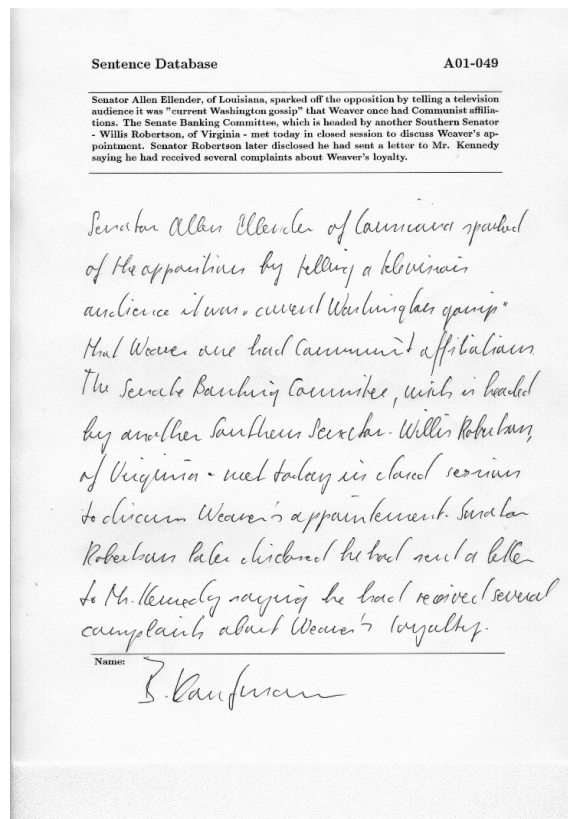 Sentence Database A01-049
Senator Allen Ellender, of Louisiana, sparked off the opposition by telling a television
audience it was "current Washington gossip" that Weaver once had Communist affilia-
tions. The Senate Banking Committee, which is headed by another Southern Senator
- Willis Robertson, of Virginia - met today in closed session to discuss Weaver's ap-
pointment. Senator Robertson later disclosed he had sent a letter to Mr. Kennedy
saying he had received several complaints about Weaver's loyalty.
Senator Allen Ellender of Louisiana sparked
of the opposition by telling a television
audience it was "current Washington gossip"
that Weaver one had Communist affiliations
The Senate Banking Committee, wich is headed
by another Southern Senator. Willis Robertson,
of Virginia - met today in closed session
to discuss Weaver's appointement. Senator
Robertson later disclosed he had sent a letter
to Mr. Kennedy saying he had received several
complaints about Weaver's loyalty.
Name:
B. Kaufmann